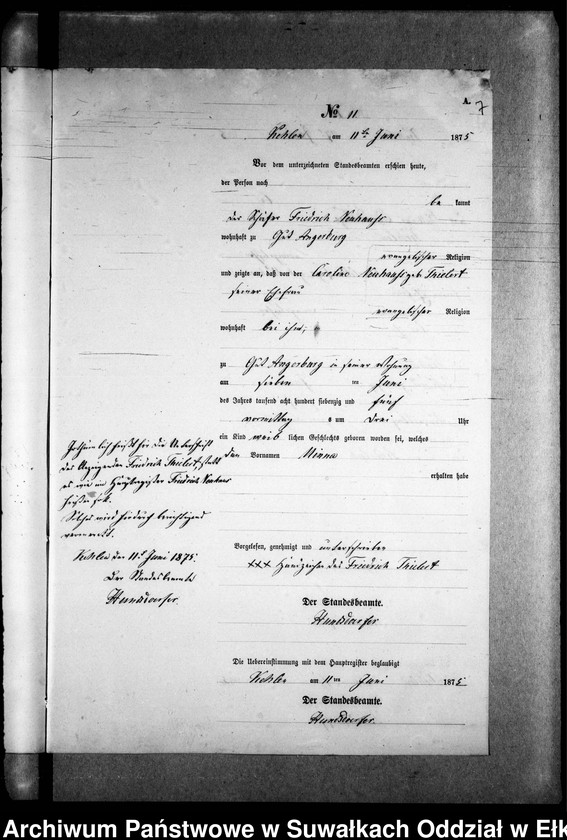 A.
7
№ 11
Kehlen am 11ten Juni 1875
Vor dem unterzeichneten Standesbeamten erschien heute,
der Person nach
be kannt
der Schäfer Friedrich Neuhauss
wohnhaft zu Gut Angerburg
evangelischer Religion
und zeigte an, daß von der Caroline Neuhauss geb. Thielert
seiner Ehefrau
evangelischer Religion
wohnhaft bei ihm,
zu Gut Angerburg in seiner Wohnung
am sieben ten Juni
des Jahres tausend acht hundert siebenzig und fünf
vormittag s um drei Uhr
ein Kind weib lichen Geschlechts geboren worden sei, welches
den Vornamen Minna
erhalten habe
Vorgelesen, genehmigt und unterschrieben
××× Handzeichen des Friedrich Thielert
Der Standesbeamte.
Hunsdoerfer
Die Uebereinstimmung mit dem Hauptregister beglaubigt
Kehlen am 11ten Juni 1875
Der Standesbeamte.
Hunsdoerfer
Irrthümlich heißt hier die Unterschrift
des Anzeigenden Friedrich Thielert, statt
es wie im Hauptregister Friedrich Neuhaus
heißen soll.
Solches wird hierdurch berichtigend
vermerkt.
Kehlen den 11t Juni 1875
Der Standesbeamte
Hunsdoerfer
Archiwum Państwowe w Suwałkach Oddział w Ełk